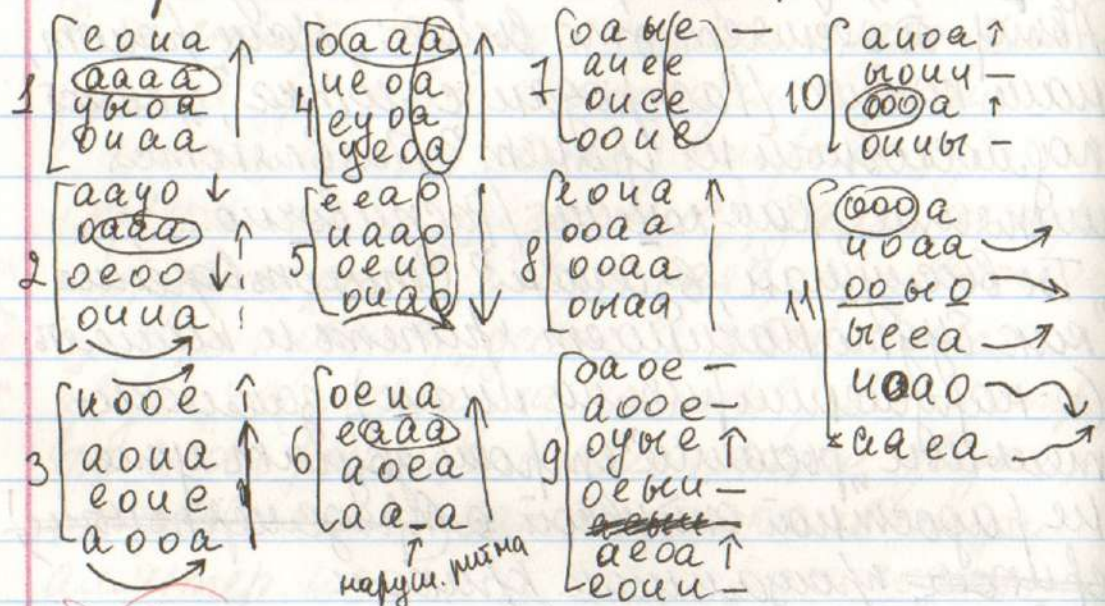 1
еоиа
аааа
уыоа
оиаа
2
аауо
оааа
оеоо
оииа
3
иоое
аоиа
еоие
аооа
4
оааа
иеоа
еуоа
уеоа
5
ееао
иаао
оеио
оиао
6
оеиа
еааа
аоеа
аа_а
наруш. ритма
7
оаые –
аиее
оиее
ооие
8
еоиа
ооаа
ооаа
оыаа
9
оаое –
аоое –
оуые
оеыи –
аеоа
еоии –
10
аиоа
ыоии –
оооа
оииы –
11
оооа
иоаа
ооыо
ыееа
иоао
ааеа